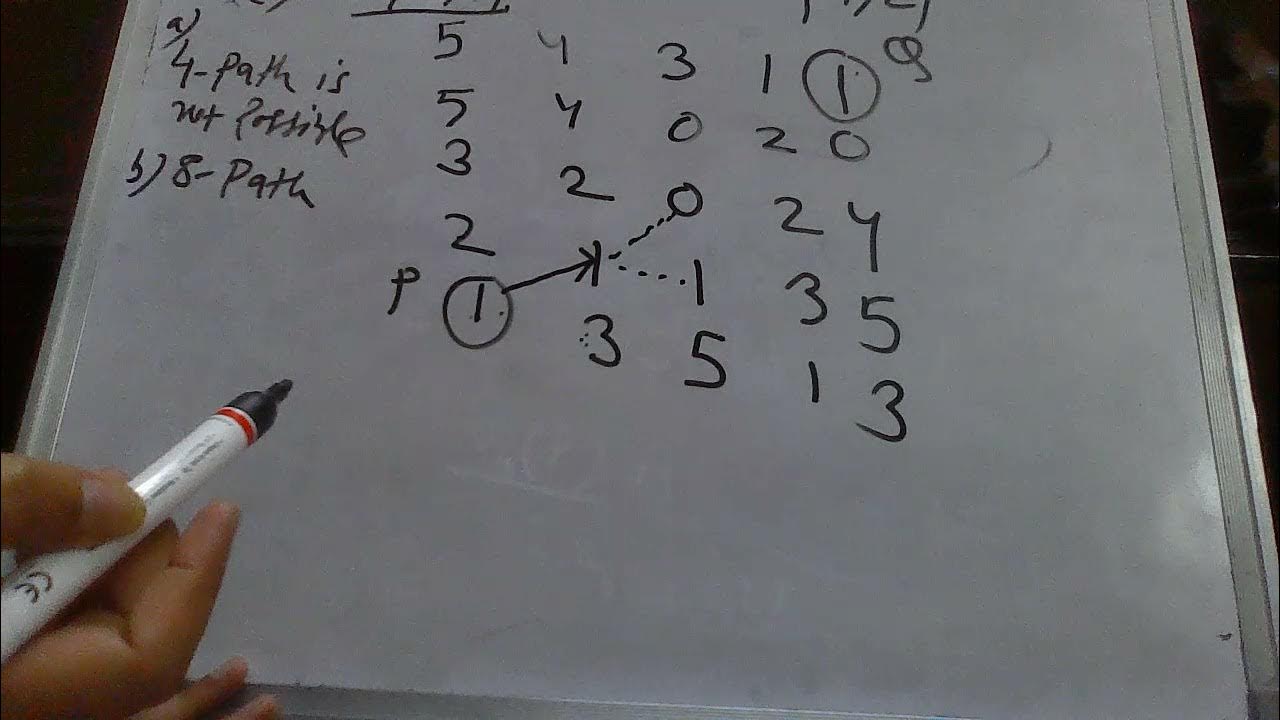 a)
4-Path is
not Possible
b) 8-Path
5 4 3 1 1 Q
5 4 0 2 0
3 2 0 2 4
2 1 1 3 5
P 1 3 5 1 3
CE